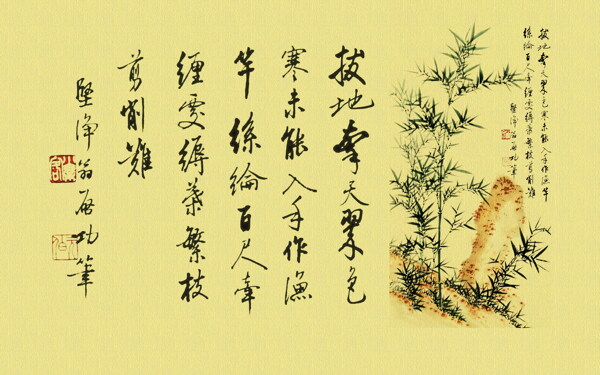 拔地天翠色寒未能入手作漁竿
絲綸百尺牽纏處縟葉繁枝剪削難
堅淨翁啟功筆
拔地天翠色
寒未能入手作漁
竿絲綸百尺牽
纏處縟葉繁枝
剪削難
堅淨翁啟功筆